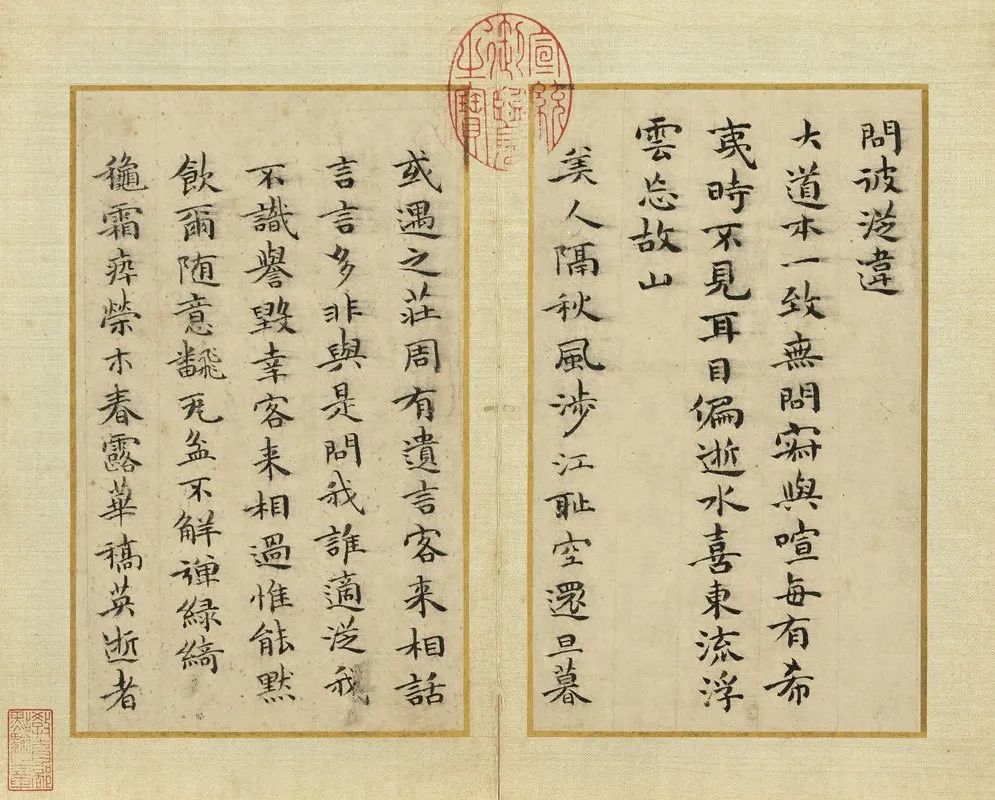 問彼從違
大道本一致無問寂與喧每有希
夷時不見耳目偏逝水喜東流浮
雲忘故山
美人隔秋風涉江耻空還旦暮
或遇之莊周有遺言客来相話
言言多非與是問我誰適從我
不識譽毀幸客来相過惟能默
飲爾随意飜瓦盆不解彈緑綺
龝霜瘁榮木春露華槁英逝者
宣統御覽之寶